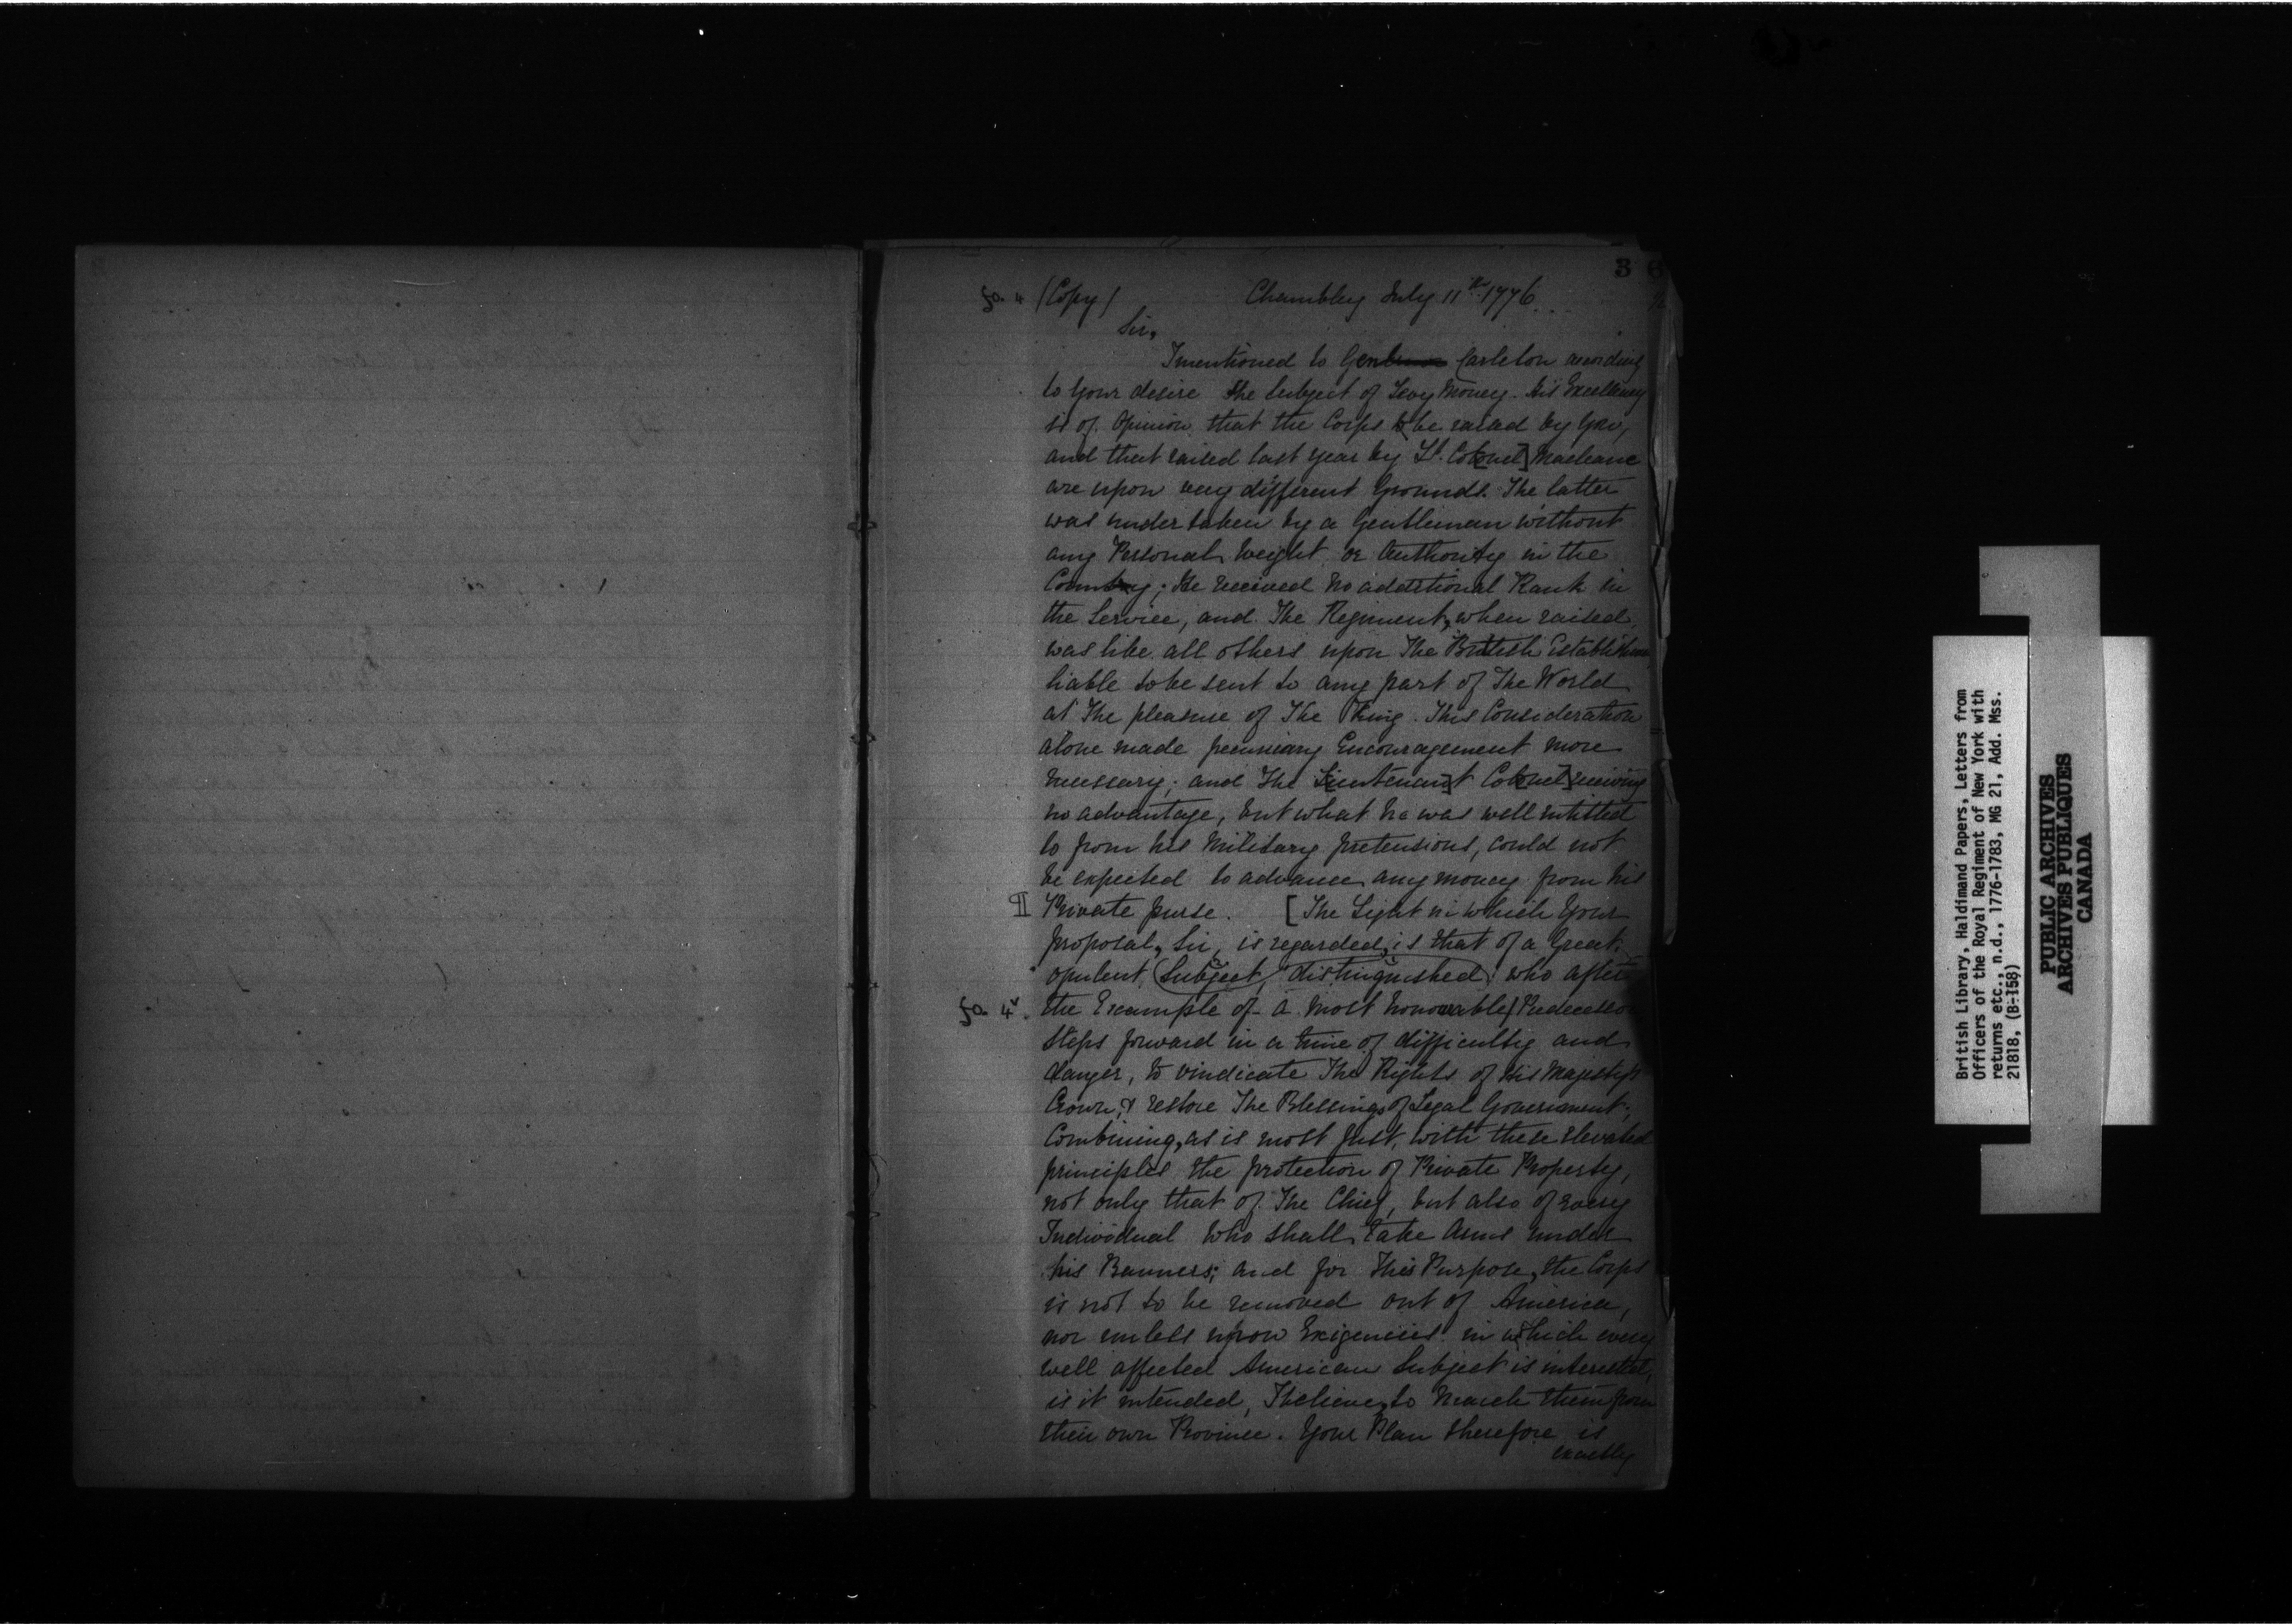 3
fo. 4 (Copy) Chambly July 11th 1776
Sir,
I mentioned to Gen Carleton according
to Your desire the Subject of Levy Money. His Excellency
is of Opinion that the Corps to be raised by You,
and that raised last year by Lt. Colonel] Macleane
are upon very different Grounds. The latter
was undertaken by a Gentleman without
any Personal Weight or Authority in the
Country; He received no additional Rank in
the Service, and The Regiment, when raised
was like all others upon The British Establishment
liable to be sent to any part of The World
at The pleasure of The King. This Consideration
alone made pecuniary Encouragement more
necessary; and The Lieutenant Colonel] receiving
no advantage, but what he was well intitled
to from his Military pretensions, could not
be expected to advance any money from his
Private purse. [The Light in which Your
proposal, Sir, is regarded, is that of a Great
opulent (Subject, distinguished) who after
fo. 4v. the Example of a most honourable] Predecessor
steps forward in a time of difficulty and
danger, to vindicate The Rights of His Majesty's
Crown, & restore The Blessings of Legal Government;
Combining, as is most just, with these elevated
principles the protection of Private Property,
not only that of The Chief, but also of every
Individual who shall take Arms under
his Banners; and for This Purpose, the Corps
is not to be removed out of America,
nor unless upon Exigencies in which every
well affected American Subject is interested,
is it intended, I believe, to March them from
their own Province. Your Plan therefore is
exactly
British Library, Haldimand Papers, Letters from
Officers of the Royal Regiment of New York with
returns etc., n.d., 1776-1783, MG 21, Add. Mss.
21818, (B-158)
PUBLIC ARCHIVES
ARCHIVES PUBLIQUES
CANADA